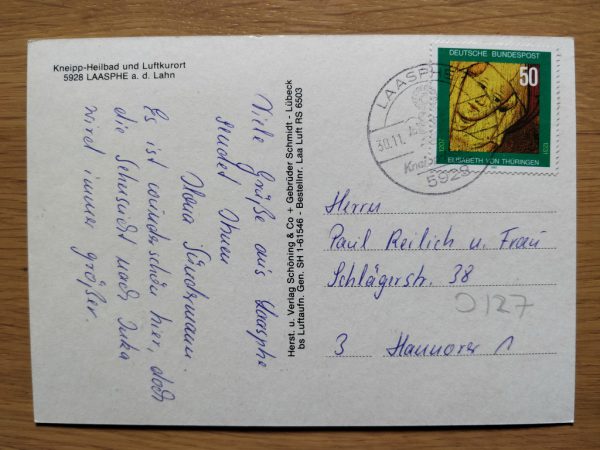 Kneipp-Heilbad und Luftkurort
5928 LAASPHE a. d. Lahn
Viele Grüße aus Laasphe
sendet Ihnen
Es ist wunderschön hier, doch
die Sehnsucht nach
wird immer größer.
Herst. u. Verlag Schöning & Co + Gebrüder Schmidt - Lübeck
bs Luftaufn. Gen. SH 1-61546 - Bestellnr. Laa Luft RS 6503
LAASPHE
30.11.
5928
DEUTSCHE BUNDESPOST
50
1207
1231
ELISABETH VON THÜRINGEN
Herrn
Paul Reilich u. Frau
Schlägerstr. 38
D127
3 Hannover 1